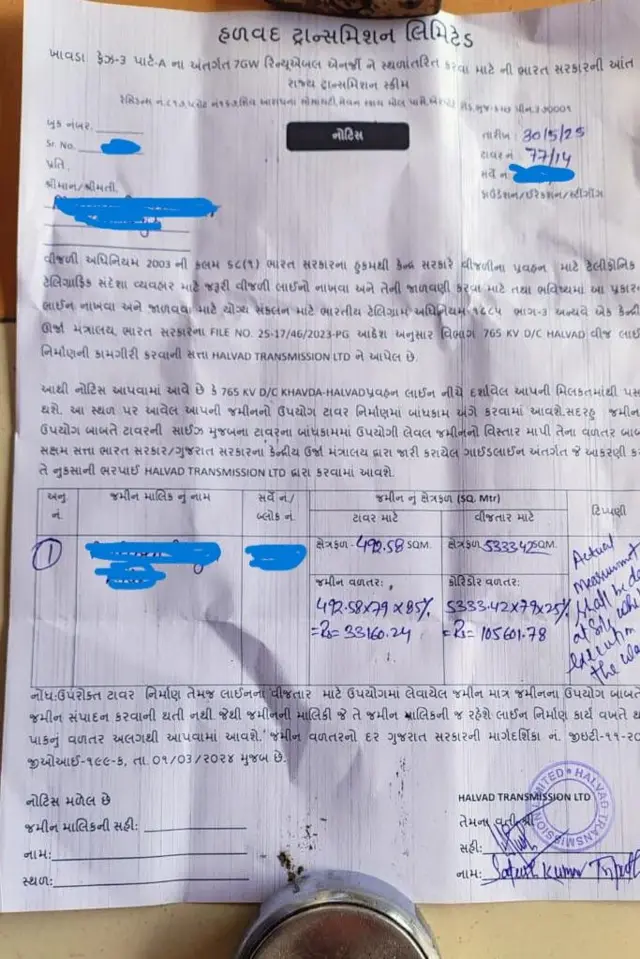 હળવદ ટ્રાન્સમિશન લિમિટેડ
ખાવડા ફેઝ-3 પાર્ટ-A ના અંતર્ગત 7GW રિન્યૂએબલ એનર્જી ને સ્થળાંતરિત કરવા માટે ની ભારત સરકારની આંત
રાજ્ય ટ્રાન્સમિશન સ્કીમ
બુક નંબર.
નોટિસ
તારીખ : 30/5/25
Sr. No.
ટાવર નં 77/14
પ્રતિ
સર્વે નં
શ્રીમાન/શ્રીમતી.
ફાઉંડેશન/ઈરેક્શન/સ્ટ્રીંગીંગ
વીજળી અધિનિયમ 2003 ની કલમ ૬૮(૧) ભારત સરકારના હુકમથી કેન્દ્ર સરકારે વીજળીના પ્રવહન માટે ટેલીફોનિક
ટેલિગ્રાફિક સંદેશા વ્યવહાર માટે જરૂરી વીજળી લાઈનો નાખવા અને તેની જાળવણી કરવા માટે તથા ભવિષ્યમાં આ પ્રકાર
લાઈન નાખવા અને જાળવવા માટે યોગ્ય સંકલન માટે ભારતીય ટેલિગ્રામ અધિનિયમ-૧૮૮૫ ભાગ-૩ અન્વયે એક કેન્દ્રી
ઊર્જા મંત્રાલય, ભારત સરકારના FILE NO. 25-17/46/2023-PG આદેશ અનુસાર વિભાગ 765 KV D/C HALVAD વીજ લાઈ
નિર્માણની કામગીરી કરવાની સત્તા HALVAD TRANSMISSION LTD ને આપેલ છે.
આથી નોટિસ આપવામાં આવે છે કે 765 KV D/C KHAVDA-HALVAD પ્રવહન લાઈન નીચે દર્શાવેલ આપની મિલકતમાંથી પસ
થશે. આ સ્થળ પર આવેલ આપની જમીનનો ઉપયોગ ટાવર નિર્માણમાં બાંધકામ અંગે કરવામાં આવશે.સદરહુ જમીન
ઉપયોગ બાબતે ટાવરની સાઈઝ મુજબના ટાવરના બાંધકામમાં ઉપયોગી લેવલ જમીનનો વિસ્તાર માપી તેના વળતર બાબ
સક્ષમ સત્તા ભારત સરકાર/ગુજરાત સરકારના કેન્દ્રીય ઉર્જા મંત્રાલય દ્વારા જારી કરાયેલ ગાઈડલાઈન અંતર્ગત જે આકરણી ક
તે નુકસાની ભરપાઈ HALVAD TRANSMISSION LTD દ્વારા કરવામાં આવશે.
અનુ નં.
જમીન માલિક નું નામ
સર્વે નં./ બ્લોક નં.
જમીન નું ક્ષેત્રફળ (SQ. Mtr)
ટિપ્પણી
ટાવર માટે
વીજતાર માટે
1
ક્ષેત્રફળ - 492.58 SQM.
ક્ષેત્રફળ 5333.42 SQM.
Actual measurment shall be
at
execution
the
જમીન વળતર:
કોરિડોર વળતર:
492.58x79x85%
5333.42x79x25%
=Rs= 33160.24
=Rs= 105601.78
નોંધ:ઉપરોક્ત ટાવર નિર્માણ તેમજ લાઈનના વીજતાર માટે ઉપયોગમાં લેવાયેલ જમીન માત્ર જમીનના ઉપયોગ બાબતે
જમીન સંપાદન કરવાની થતી નથી. જેથી જમીનની માલિકી જે તે જમીન માલિકની જ રહેશે લાઈન નિર્માણ કાર્ય વખતે થ
પાકનું વળતર અલગથી આપવામાં આવશે. જમીન વળતરનો દર ગુજરાત સરકારની માર્ગદર્શિકા નં. જીઇટી-૧૧-૨૦
જીઓઆઈ-૧૯૯-ક, તા. ૦૧/૦૩/૨૦૨૪ મુજબ છે.
નોટિસ મળેલ છે
HALVAD TRANSMISSION LTD
જમીન માલિકની સહી:
તેમના વતી
સહી:
નામ:
નામ: Kumar
સ્થળ:
HALVAD TRANSMISSION LIMITED